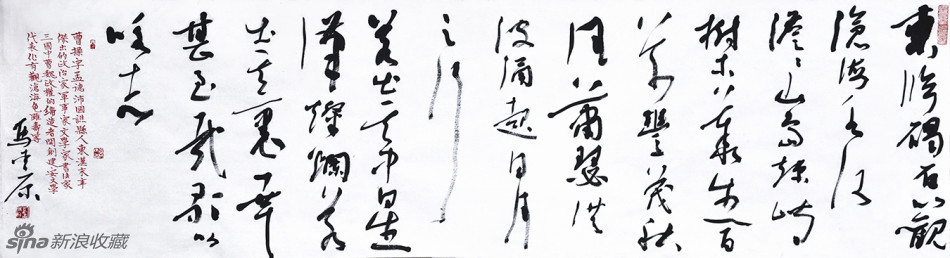 東臨碣石以觀
滄海水何
澹澹山島竦峙
樹木叢生百
草豐茂秋
風蕭瑟洪
波涌起日月
之行
若出其中星
漢燦爛若
出其裏幸
甚至哉歌以
咏志
曹操字孟德沛國譙縣人東漢末年
傑出的政治家軍事家文學家書法家
三國中曹魏政權的締造者開創建安文學
代表作有觀滄海龜雖壽等
馬中原
sina新浪收藏